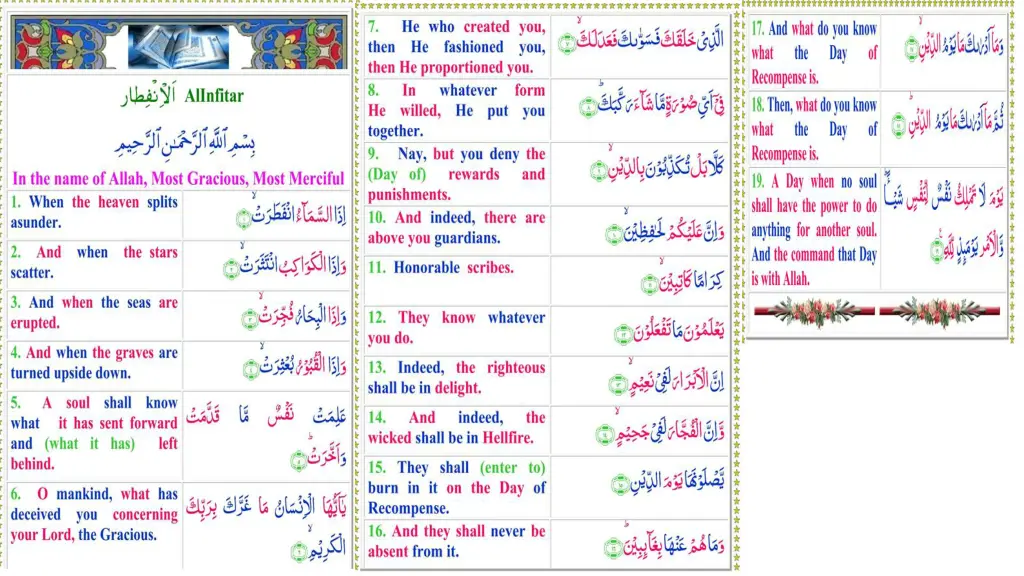 اَلْاِنْفِطار AlInfitar
بِسْمِ ٱللَّهِ ٱلرَّحْمَـٰنِ ٱلرَّحِيمِ
In the name of Allah, Most Gracious, Most Merciful
1. When the heaven splits asunder.
اِذَا السَّمَآءُ انْفَطَرَتْ ۙ﴿۱﴾
2. And when the stars scatter.
وَاِذَا الْكَوَاكِبُ انْتَثَرَتْ ۙ﴿۲﴾
3. And when the seas are erupted.
وَاِذَا الْبِحَارُ فُجِّرَتْ ۙ﴿۳﴾
4. And when the graves are turned upside down.
وَاِذَا الْقُبُوْرُ بُعْثِرَتْ ۙ﴿۴﴾
5. A soul shall know what it has sent forward and (what it has) left behind.
عَلِمَتْ نَفْسٌ مَّا قَدَّمَتْ
وَاَخَّرَتْ ؕ﴿۵﴾
6. O mankind, what has deceived you concerning your Lord, the Gracious.
يٰۤاَيُّهَا الْاِنْسَانُ مَا غَرَّكَ بِرَبِّكَ
الْكَرِيْمِ ۙ﴿۶﴾
7. He who created you, then He fashioned you, then He proportioned you.
الَّذِىْ خَلَقَكَ فَسَوّٰٮكَ فَعَدَلَكَ ۙ﴿۷﴾
8. In whatever form He willed, He put you together.
فِىْۤ اَىِّ صُوْرَةٍ مَّا شَآءَ رَكَّبَكَ ؕ﴿۸﴾
9. Nay, but you deny the (Day of) rewards and punishments.
كَلَّا بَلْ تُكَذِّبُوْنَ بِالدِّيْنِ ۙ﴿۹﴾
10. And indeed, there are above you guardians.
وَاِنَّ عَلَيْكُمْ لَحٰفِظِيْنَ ۙ﴿۱۰﴾
11. Honorable scribes.
كِرَامًا كَاتِبِيْنَ ۙ﴿۱۱﴾
12. They know whatever you do.
يَعْلَمُوْنَ مَا تَفْعَلُوْنَ ﴿۱۲﴾
13. Indeed, the righteous shall be in delight.
اِنَّ الْاَبْرَارَ لَفِىْ نَعِيْمٍ ۙ﴿۱۳﴾
14. And indeed, the wicked shall be in Hellfire.
وَاِنَّ الْفُجَّارَ لَفِىْ جَحِيْمٍ ۙ﴿۱۴﴾
15. They shall (enter to) burn in it on the Day of Recompense.
يَّصْلَوْنَهَا يَوْمَ الدِّيْنِ ﴿۱۵﴾
16. And they shall never be absent from it.
وَمَا هُمْ عَنْهَا بِغَآٮِٕبِيْنَ ؕ﴿۱۶﴾
17. And what do you know what the Day of Recompense is.
وَمَاۤ اَدْرٰٮكَ مَا يَوْمُ الدِّيْنِ ۙ﴿۱۷﴾
18. Then, what do you know what the Day of Recompense is.
ثُمَّ مَاۤ اَدْرٰٮكَ مَا يَوْمُ الدِّيْنِ ؕ﴿۱۸﴾
19. A Day when no soul shall have the power to do anything for another soul. And the command that Day is with Allah.
يَوْمَ لَا تَمْلِكُ نَفْسٌ لِّنَفْسٍ شَيْئًا ؕ
وَالْاَمْرُ يَوْمَٮِٕذٍ لِّلّٰهِ ﴿۱۹﴾